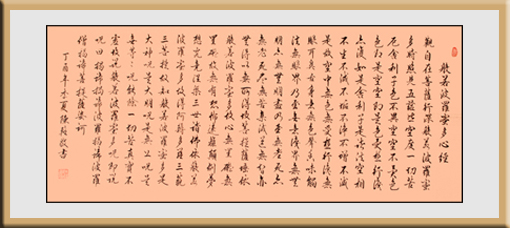 般若波羅蜜多心經
觀自在菩薩行深般若波羅蜜
多時照見五蘊皆空度一切苦
厄舍利子色不異空空不異色
色即是空空即是色受想行識
亦復如是舍利子是諸法空相
不生不滅不垢不淨不增不減
是故空中無色無受想行識無
眼耳鼻舌身意無色聲香味觸
法無眼界乃至無意識界無無
明亦無無明盡乃至無老死亦
無老死盡無苦集滅道無智亦
無得以無所得故菩提薩埵依
般若波羅蜜多故心無罣礙無
罣礙故無有恐怖遠離顛倒夢
想究竟涅槃三世諸佛依般若
波羅蜜多故得阿耨多羅三藐
三菩提故知般若波羅蜜多是
大神咒是大明咒是無上咒是
無等等咒能除一切苦真實不
虛故說般若波羅蜜多咒即說
咒曰揭諦揭諦波羅揭諦波羅
僧揭諦菩提薩婆訶
丁酉年季夏敬書